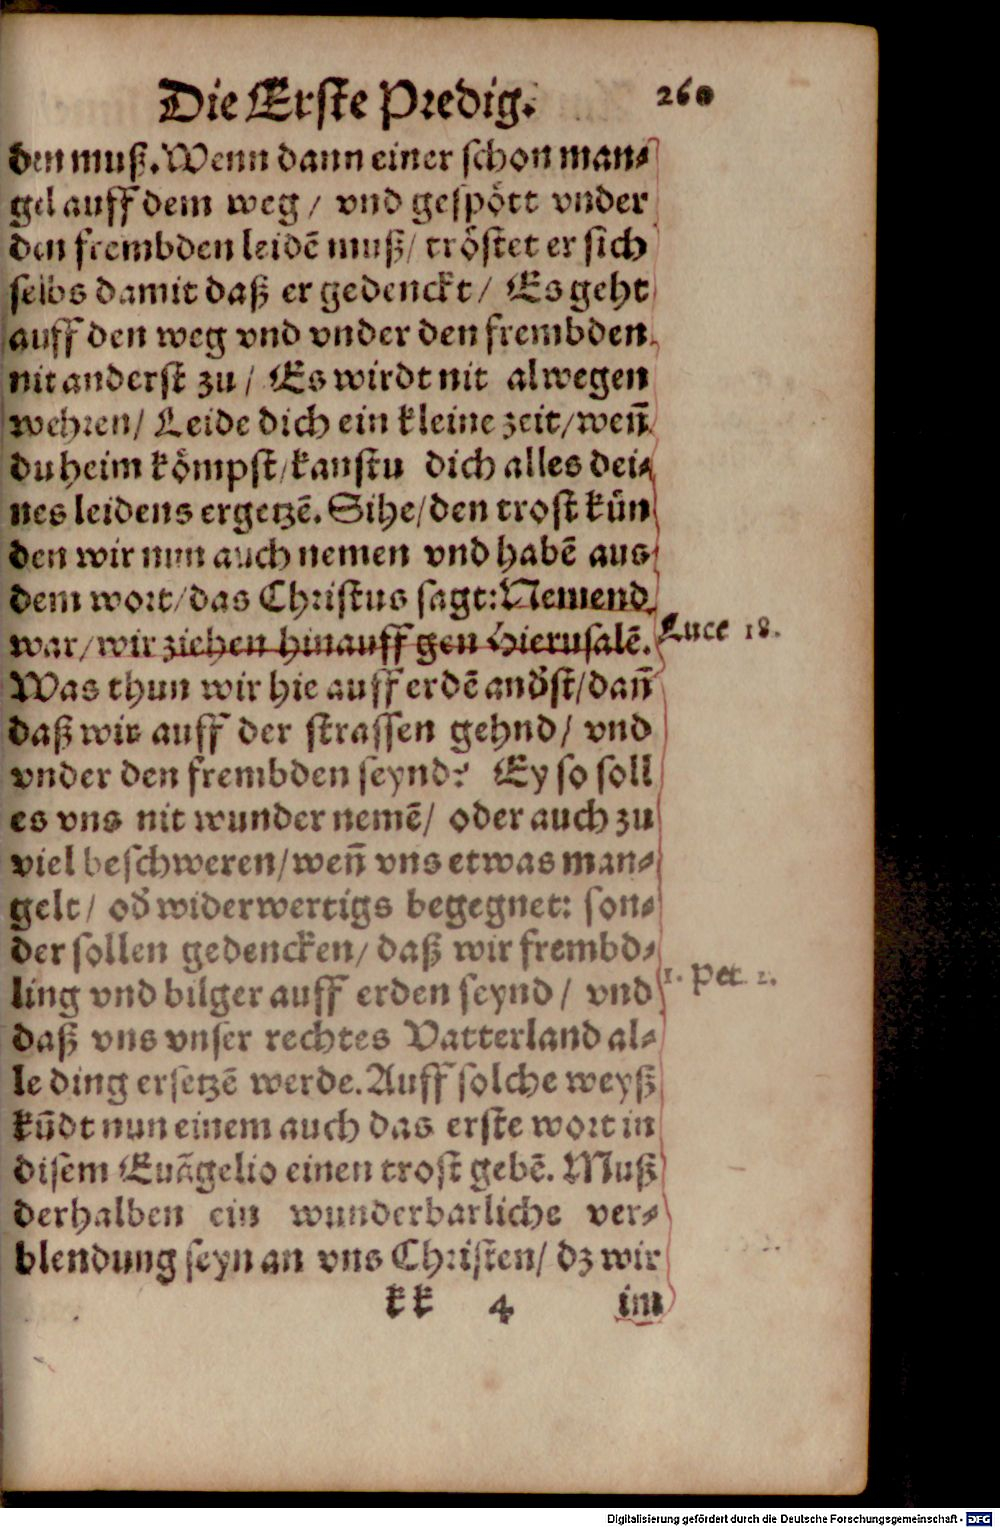 Die Erste Predig. 260
den muß. Wenn dann einer schon man⸗
gel auff dem weg / vnd gespött vnder
den frembden leidē muß / tröstet er sich
selbs damit daß er gedenckt / Es geht
auff den weg vnd vnder den frembden
nit anderst zu / Es wirdt nit alwegen
wehren / Leide dich ein kleine zeit / weñ
du heim kömpst / kanstu dich alles dei⸗
nes leidens ergetzē. Sihe / den trost kün
den wir nun auch nemen vnd habē aus
dem wort / das Christus sagt: Nemend
war / wir ziehen hinauff gen Hierusalē.
Luce 18.
Was thun wir hie auff erdē andst / dañ
daß wir auff der strassen gehnd / vnd
vnder den frembden seynd? Ey so soll
es vns nit wunder nemē / oder auch zu
viel beschweren / weñ vns etwas man⸗
gelt / od widerwertigs begegnet: son⸗
der sollen gedencken / daß wir frembd⸗
ling vnd bilger auff erden seynd / vnd
1. Pet. 2.
daß vns vnser rechtes Vatterland al⸗
le ding ersetzē werde. Auff solche weyß
kūdt nun einem auch das erste wort in
disem Euāgelio einen trost gebē. Muß
derhalben ein wunderbarliche ver⸗
blendung seyn an vns Christen / dz wir
kk 4 im
Digitalisierung gefördert durch die Deutsche Forschungsgemeinschaft - DFG